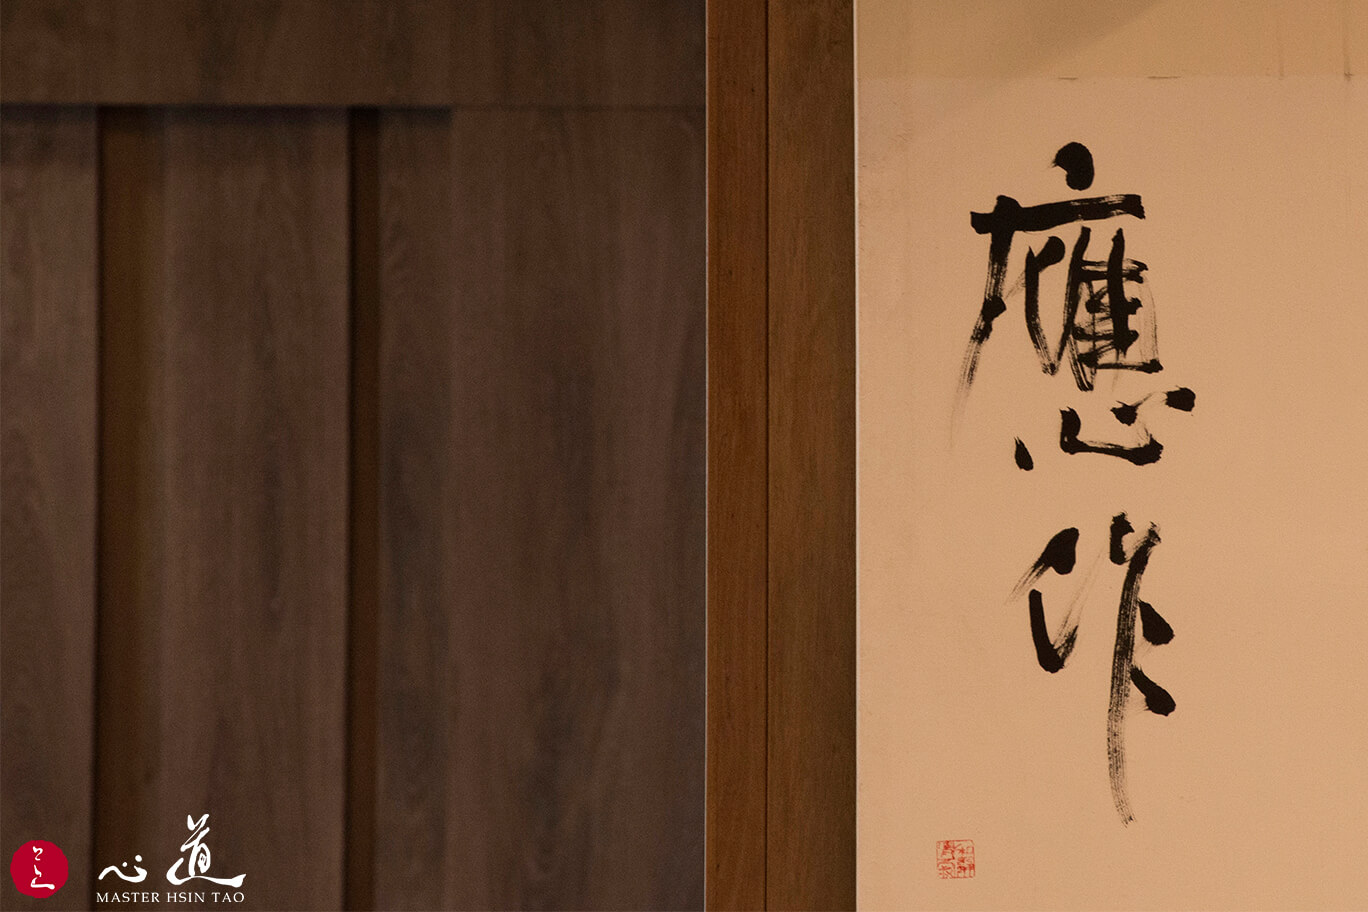 應作
心道
MASTER HSIN TAO